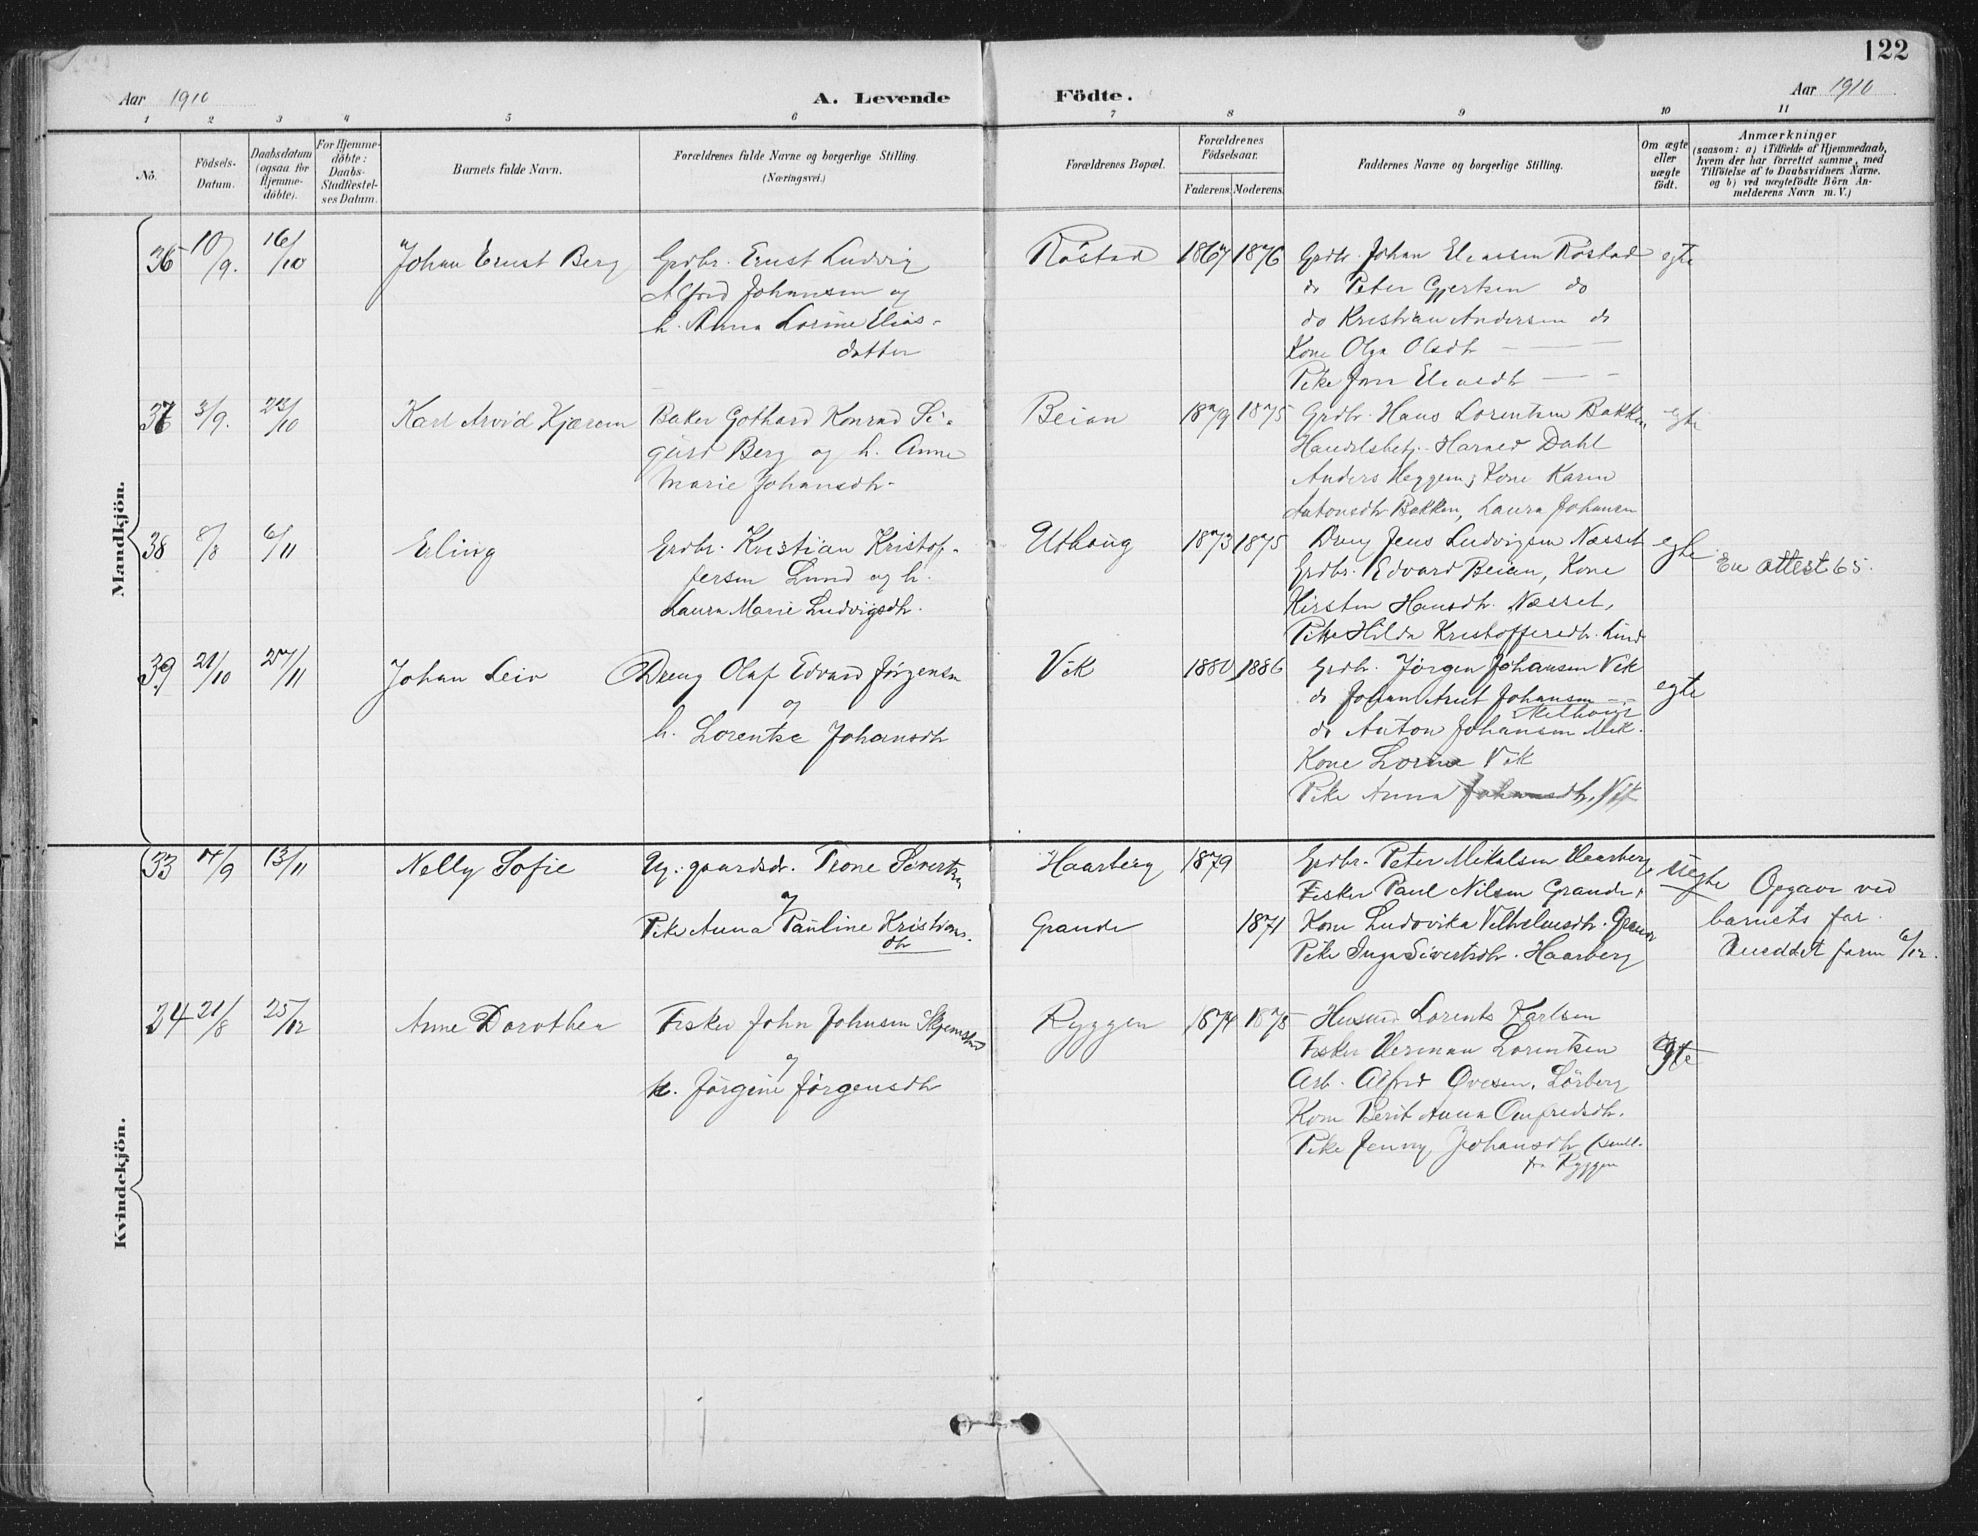 122
Aar 1910 A. Levende Födte. Aar 1910
1 2 3 4 5 6 7 8 9 10 11
No.
Födsels-
Datum.
Daabsdatum
(ogsaa for
Hjemme-
döbte).
For Hjemme-
döbte:
Daabs-
Stadfæstel-
ses Datum.
Barnets fulde Navn.
Forældrenes fulde Navne og borgerlige Stilling.
(Næringsvei.)
Forældrenes Bopæl.
Forældrenes
Födselsaar.
Faderens. Moderens.
Faddernes Navne og borgerlige Stilling.
Om ægte
eller
uægte
födt.
Anmærkninger
(saasom: a) i Tilfælde af Hjemmedaab,
hvem der har forrettet samme, med
Tilföielse af to Daabsvidners Navne.
og b) ved uægtefödte Börn An-
melderens Navn m. V.)
Mandkjön.
36 10/9. 16/10 Johan Ernst Berg
Grdbr. Ernst Ludvig
Alfred Johansen og
h. Anna Lorine Elias-
datter
Röstad 1867 1876
Grdbr. Johan Eliassen Röstad
do Peter Gjertsen do
do Kristian Andersen do
Kone Olga Olsdtr — — —
Pike Eliasdtr — —
egte
37 3/9. 23/10 Karl Arvid Kjærem
Baker Gothard Konrad Si-
gurd Berg og h. Anne
Marie Johansdtr.
Beian 1879 1875
Grdbr. Hans Lorentsen Bakken
Handelsbetj. Harald Dahl
Anders Heggem, Kone Karen
Antonsdtr Bakken, Laura Johansen
egte
38 8/8 6/11 Erling
Grdbr. Kristian Kristof-
fersen Lund og h.
Laura Marie Ludvigsdtr.
Uthaug 1873 1875
Dreng Jens Ludvigsen Næsset
Grdbr. Edvard Beian, Kone
Kirsten Hansdtr. Næsset,
Pike Hilda Kristoffersdtr. Lund
egte
En attest 65.
39 21/10 27/11 Johan Leiv
Dreng Olaf Edvard Jørgensen
og
h. Lorentse Johansdtr
Vik 1880 1886
Grdbr. Jörgen Johansen Vik
do Johan Arnt Johansen — —
do Anton Johansen Vik.
Kone Lorina Vik
Pike Anna Johansdtr, Vik
egte
Kvindekjön.
33 4/9 13/11 Nelly Sofie
Ug. gaardsdr. Trone Sivertsen
og
Pike Anna Pauline Kristians-
dtr
Haarberg 1879
Grande 1871
Grdbr. Peter Mikalsen Haarberg,
Fisker Paul Nilsen Grande,
Kone Ludovika Vilhelmsdtr. Grande
Pike Inga Sivertsdtr. Haarberg
uegte
Opgave ved
barnets far.
Anmeldet 6/12.
34 21/8 25/12 Anne Dorothea
Fisker John Johnsen
og
h. Jörgine Jørgensdtr
Ryggen 1874 1875
Husmd Lorents Karlsen
Fisker Herman Lorentsen
Arb. Alfred Ovesen, Lörberg
Kone Berit Anna Amfredsdtr.
Pike Jenny Johansdtr
fra Ryggen
egte